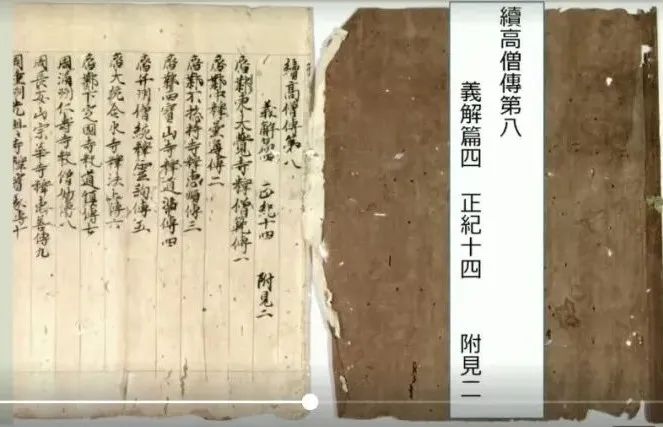 續高僧傳第八
義解篇四 正紀十四 附見二
續高僧傳第八
義解篇四 正紀十四 附見二
齊鄴東大覺寺釋僧範傳一
齊鄴中釋曇遵傳二
齊鄴下捴持寺釋惠順傳三
齊鄴西寶山寺釋道憑傳四
齊并州僧統釋靈詢傳五
齊大統合水寺釋法上傳六
齊鄴下定國寺釋道慎傳七
周蒲州仁壽寺釋僧妙傳八
周長安崇華寺釋惠善傳九
周潼州光興寺釋寶彖傳十